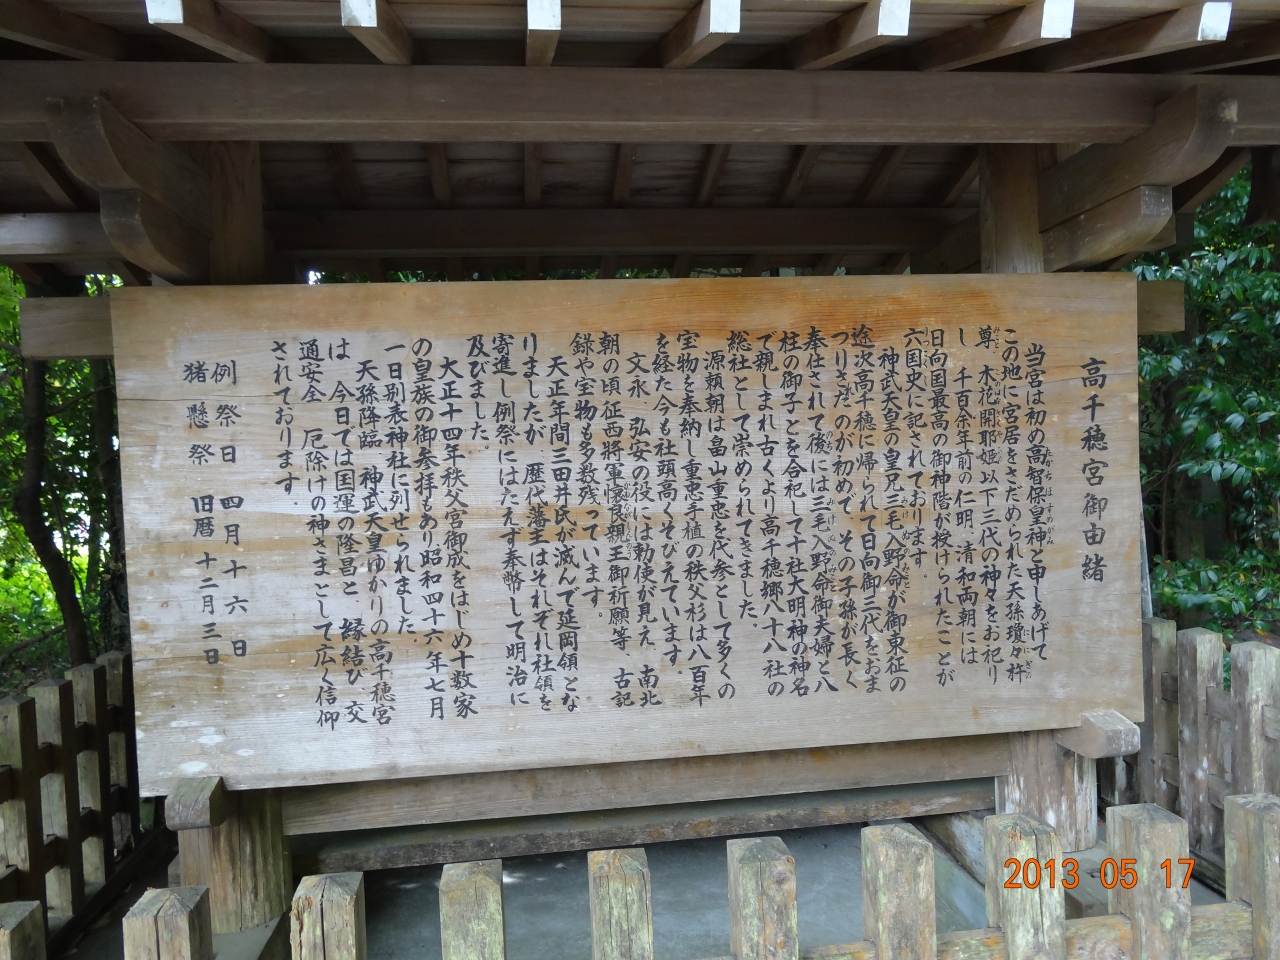 高千穂宮御由緒
当宮は初め高智保皇神と申しあげて
この地に宮居をさだめられた天孫瓊々杵
尊 木花開耶姫以下三代の神々をお祀り
し 千百余年前の仁明 清和両朝には
日向国最高の御神階が授けられたことが
六国史に記されております。
神武天皇の皇兄三毛入野命が御東征の
途次高千穂に帰られて日向御三代をおま
つりさだのが初めで その子孫が長く
奉仕されて後には三毛入野命御夫婦と八
柱の御子とを合祀して十社大明神の神名
で親しまれ古くより高千穂郷八十八社の
総社として崇められてきました。
源頼朝は畠山重忠を代参として多くの
宝物を奉納し重忠手植の秩父杉は八百年
を経た今も社頭高くそびえています。
文永 弘安の役には勅使が見え 南北
朝の頃征西将軍懐良親王御祈願等 古記
録や宝物も多数残っています。
天正年間三田井氏が滅んで延岡領とな
りましたが 歴代藩主はそれぞれ社領を
寄進し例祭にはたえず奉幣して明治に
及びました。
大正十四年秩父宮御成をはじめ十数家
の皇族の御参拝もあり昭和四十六年七月
一日別表神社に列せられました。
天孫降臨 神武天皇ゆかりの高千穂宮
は 今日では国運の隆昌と 縁結び 交
通安全 厄除けの神さまとして広く信仰
されております。
例祭日 四月十六日
猪懸祭 旧暦十二月三日
2013 05 17